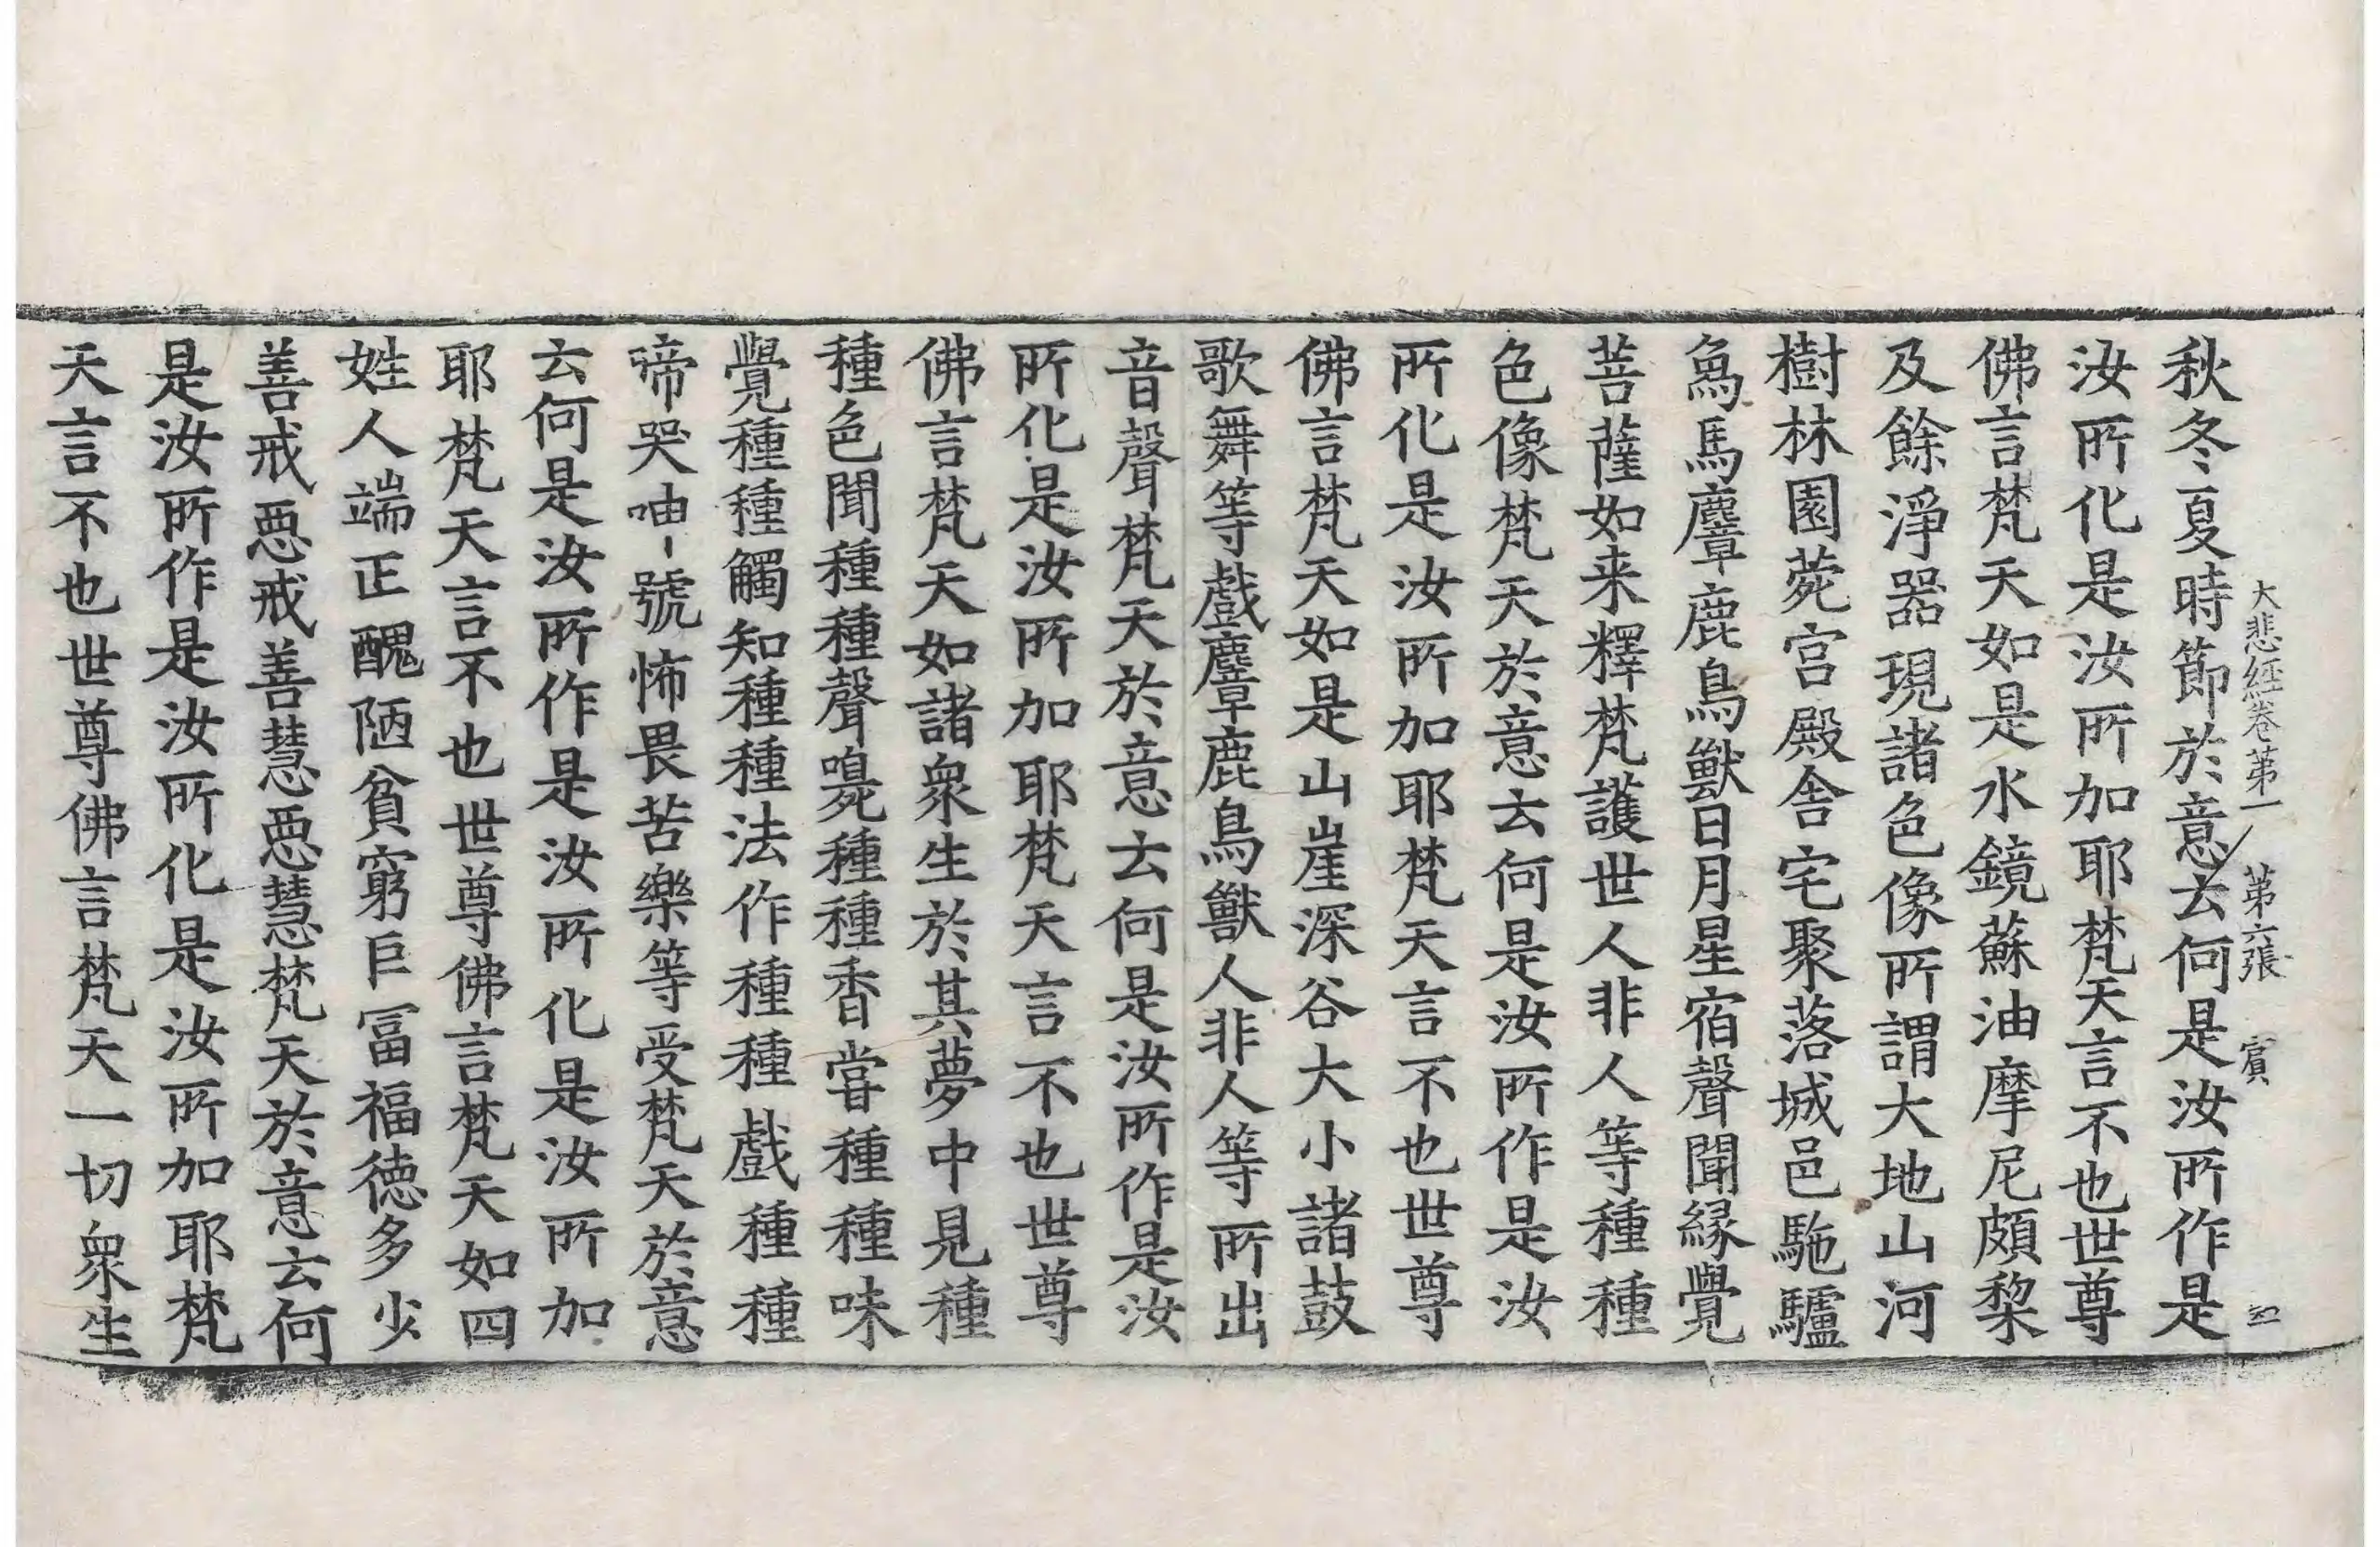 大悲經卷第一 第六張 賓
秋冬夏時節於意云何是汝所作是
汝所化是汝所加耶梵天言不也世尊
佛言梵天如是水鏡蘇油摩尼頗棃
及餘淨器現諸色像所謂大地山河
樹林園菀宫殿舎宅聚落城邑駞驢
象馬麞鹿鳥獸日月星宿聲聞緣覺
菩薩如来釋梵護世人非人等種種
色像梵天於意云何是汝所作是汝
所化是汝所加耶梵天言不也世尊
佛言梵天如是山崖深谷大小諸鼓
歌舞等戲麞鹿鳥獸人非人等所出
音聲梵天於意云何是汝所作是汝
所化是汝所加耶梵天言不也世尊
佛言梵天如諸衆生於其夢中見種
種色聞種種聲嗅種種香甞種種味
覺種種觸知種種法作種種戲種種
啼哭呻號怖畏苦樂等受梵天於意
云何是汝所作是汝所化是汝所加
耶梵天言不也世尊佛言梵天如四
姓人端正醜陋貧窮巨富福德多少
善戒惡戒善慧惡慧梵天於意云何
是汝所作是汝所化是汝所加耶梵
天言不也世尊佛言梵天一切衆生